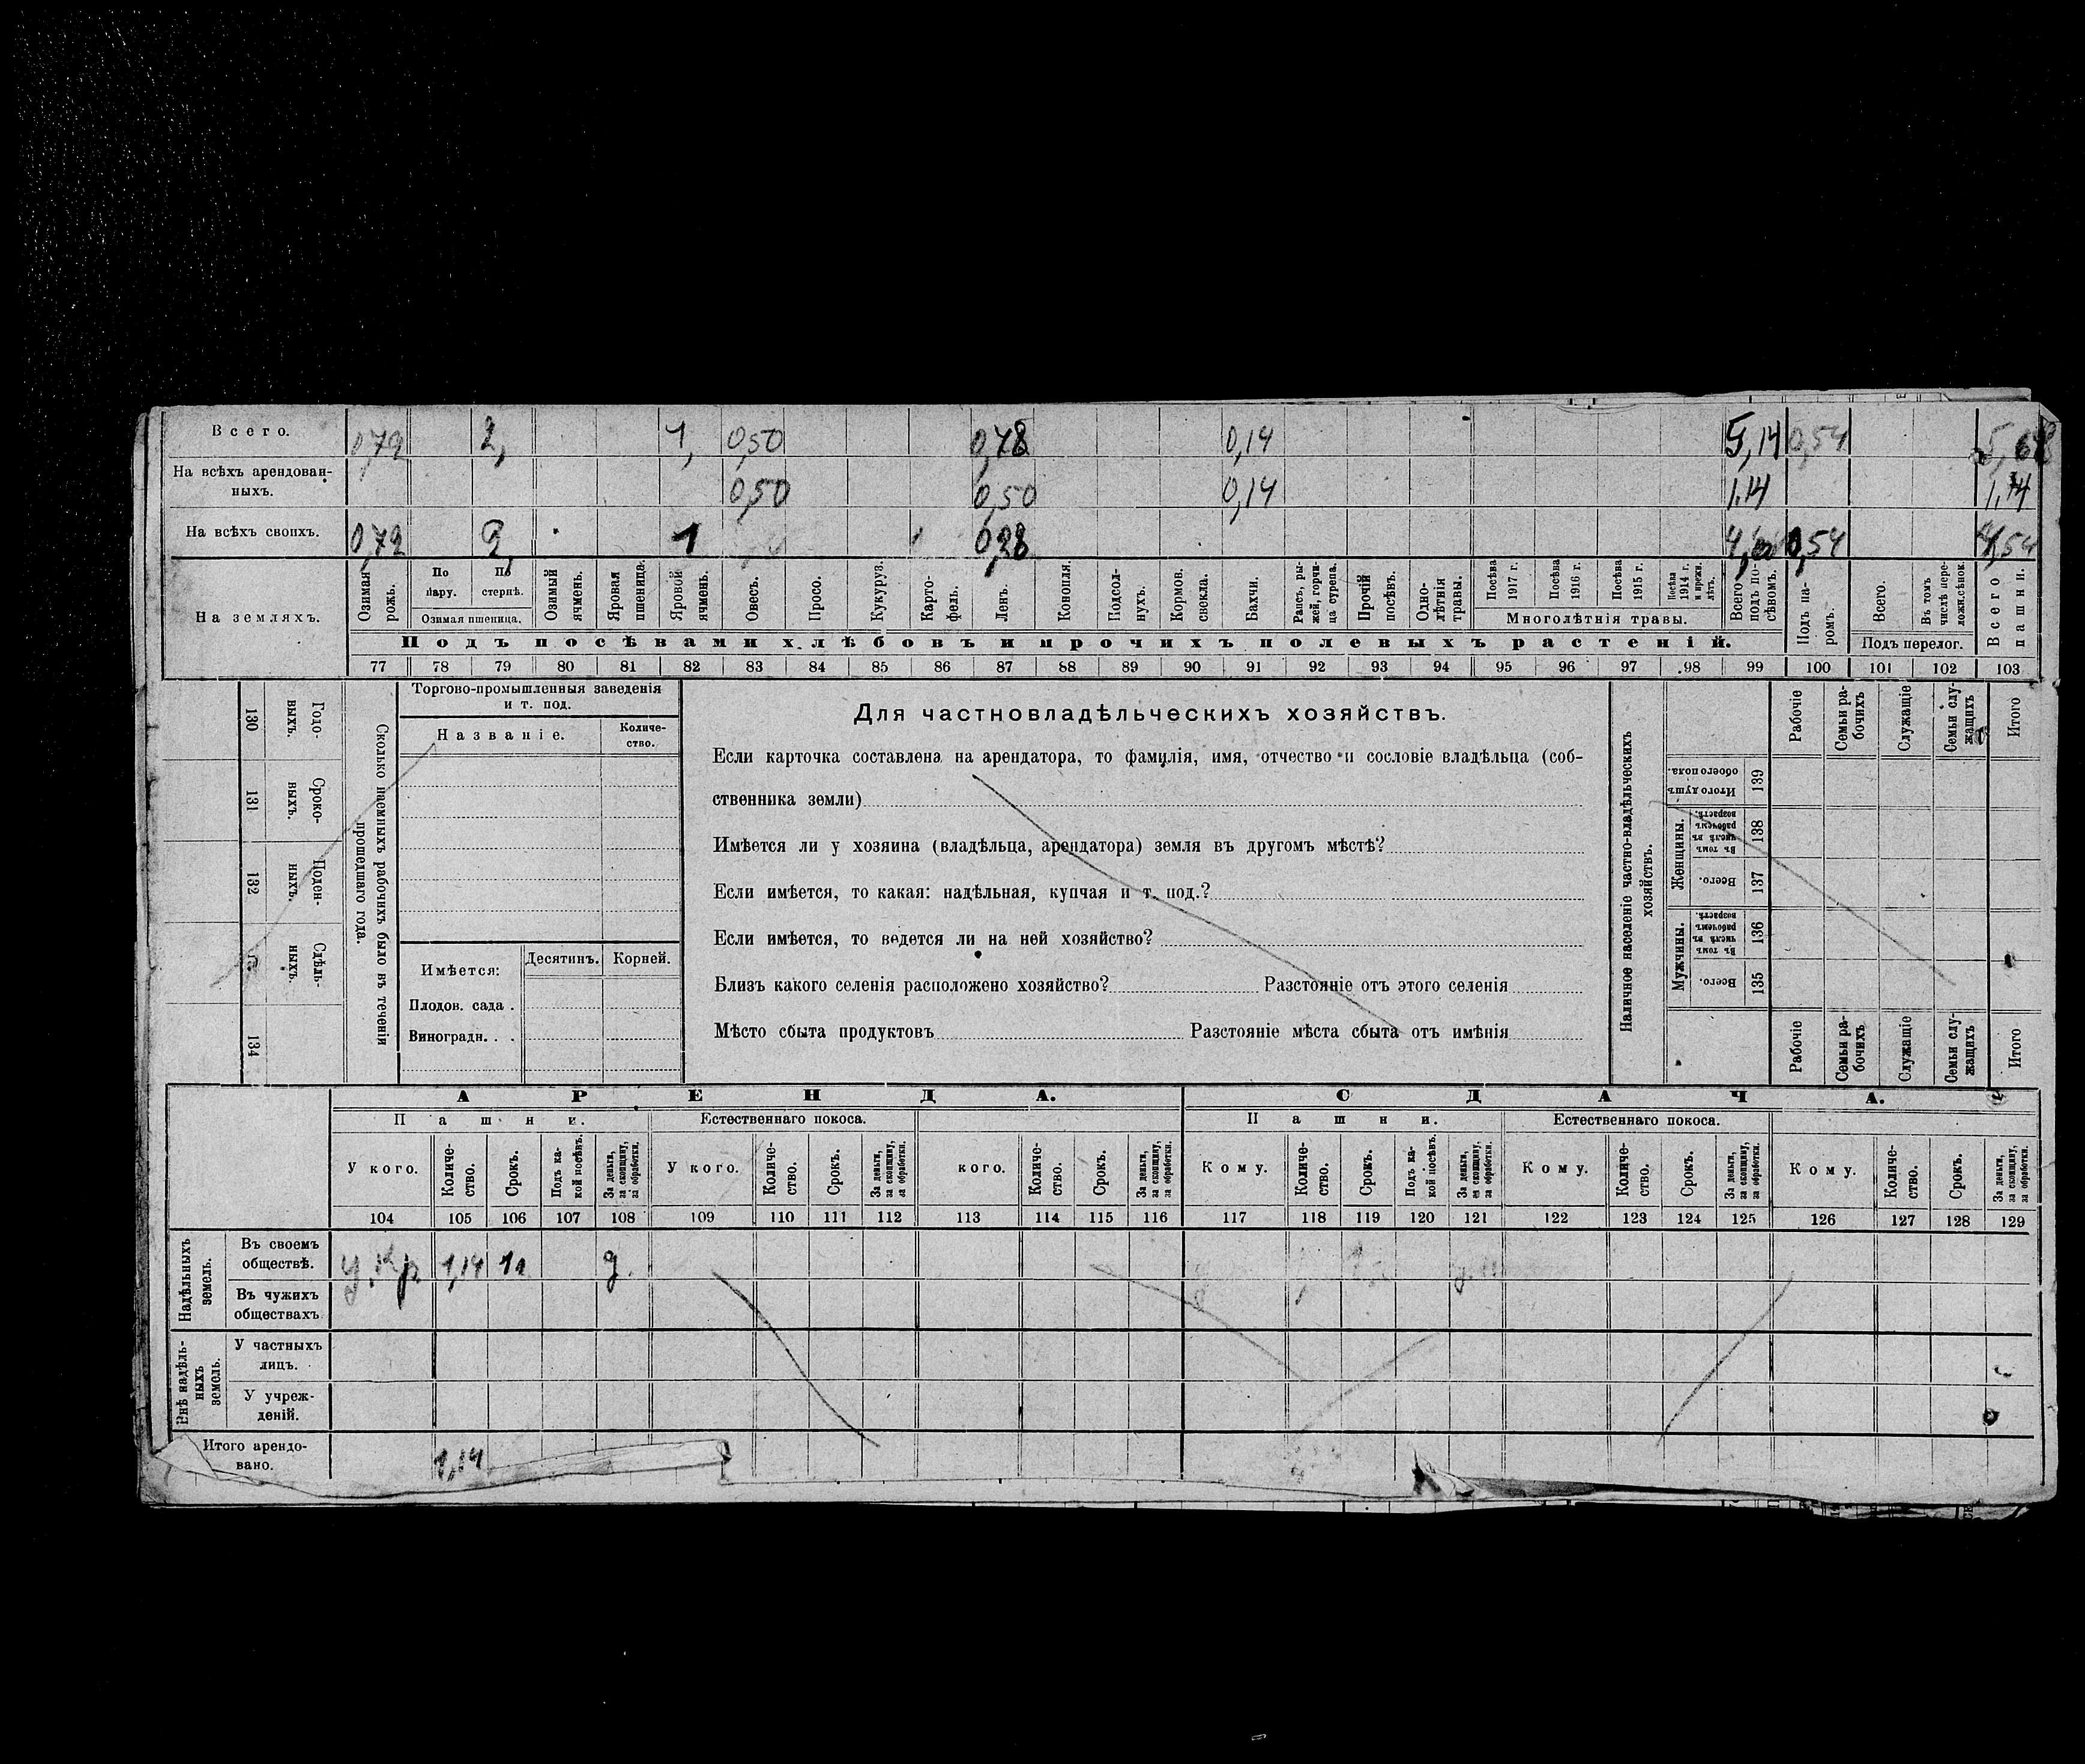 Всего. 0,72 2, 1, 0,50 0,78 0,14 5,14 0,54 5,68
На всѣхъ арендован-
ныхъ. 0,50 0,50 0,14 1.14 1,14
На всѣхъ своихъ. 0,72 2, 1 0,28 0,54 4,54
На земляхъ.
Озимая рожь.
По пару.
По стернѣ.
Озимая пшеница.
Озимый ячмень.
Яровая пшеница.
Яровой ячмень.
Овесъ.
Просо.
Кукуруз.
Карто-
фель.
Ленъ.
Конопля.
Подсол-
нухъ.
Кормов. свекла.
Бахчи.
Рапсъ, ры-
жей, горчи-
ца сурепа.
Прочій посѣвъ.
Одно-
лѣтнія травы.
Посѣва 1917 г.
Посѣва 1916 г.
Посѣва 1915 г.
Посѣва 1914 г. и прежн. лѣтъ.
Многолѣтнія травы.
Всего подъ по-
сѣвомъ.
Подъ па-
ромъ.
Всего.
Въ томъ числѣ пере-
ложн. сѣнок.
Подъ перелог.
Всего пашни.
Подъ посѣвами хлѣбовъ и прочихъ полевыхъ растеній.
77 78 79 80 81 82 83 84 85 86 87 88 89 90 91 92 93 94 95 96 97 98 99 100 101 102 103
130 Годо-
выхъ.
131 Сроко-
выхъ.
132 Поден-
ныхъ.
Сдѣль-
ныхъ.
134
Сколько наемныхъ рабочихъ было въ теченіи
прошедшаго года.
Торгово-промышленныя заведенія
и т. под.
Названіе. Количе-
ство.
Имѣется: Десятинъ. Корней.
Плодов. сада .
Виноградн. . .
Для частновладѣльческихъ хозяйствъ.
Если карточка составлена на арендатора, то фамилія, имя, отчество и сословіе владѣльца (соб-
ственника земли)
Имѣется ли у хозяина (владѣльца, арендатора) земля въ другомъ мѣстѣ?
Если имѣется, то какая: надѣльная, купчая и т. под.?
Если имѣется, то ведется ли на ней хозяйство?
Близъ какого селенія расположено хозяйство? Разстояніе отъ этого селенія
Мѣсто сбыта продуктовъ Разстояніе мѣста сбыта отъ имѣнія
Наличное населеніе частно-владѣльческихъ
хозяйствъ.
Итого душъ обоего пола. 139
Женщины.
Въ томъ числѣ въ рабочемъ возрастѣ. 138
Всего. 137
Мужчины.
Въ томъ числѣ въ рабочемъ возрастѣ. 136
Всего. 135
Рабочіе
Семьи ра-
бочихъ
Служащіе
Семьи слу-
жащихъ
Итого
Рабочіе
Семьи ра-
бочихъ
Служащіе
Семьи слу-
жащихъ
Итого
АРЕНДА. СДАЧА.
Пашни. Естественнаго покоса. Пашни. Естественнаго покоса.
У кого.
Количе-
ство.
Срокъ.
Подъ ка-
кой посѣвъ.
За деньги,
за скопщину,
за обработки.
У кого.
Количе-
ство.
Срокъ.
За деньги,
за скопщину,
за обработки.
кого.
Количе-
ство.
Срокъ.
За деньги,
за скопщину,
за обработки.
Кому.
Количе-
ство.
Срокъ.
Подъ ка-
кой посѣвъ.
За деньги,
за скопщину,
за обработки.
Кому.
Количе-
ство.
Срокъ.
За деньги,
за скопщину,
за обработки.
Кому.
Количе-
ство.
Срокъ.
За деньги,
за скопщину,
за обработки.
104 105 106 107 108 109 110 111 112 113 114 115 116 117 118 119 120 121 122 123 124 125 126 127 128 129
Надѣльныхъ
земель.
Въ своемъ
обществѣ. у. Кр. 1,14 1г д.
Въ чужихъ
обществахъ
Внѣ надѣль-
ныхъ
земель.
У частныхъ
лицъ.
У учреж-
деній.
Итого арендо-
вано. 1,14